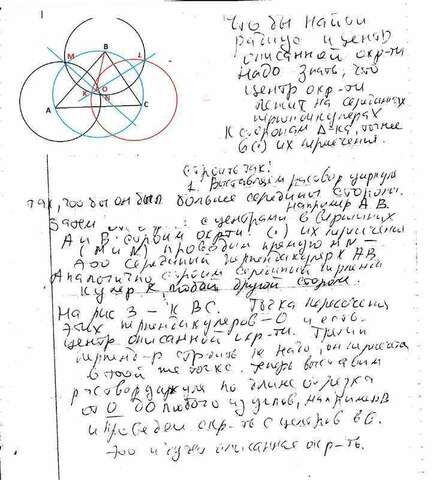 1
Что бы найти
радиус и центр
описанной окр-ти
надо знать, что
центр окр-ти
лежит на серединных
перпендикулярах
к сторонам Δ-ка, точнее
в (·) их пересечения.
M
B
L
K
O
N
A
C
Строить так:
1. Выставляем раствор циркуля
так, что бы он был больше середины стороны,
например AB.
Затем с центрами в вершинах
A и B строим окр-ти. (·) их пересечения
(M и N) проводим прямую MN –
это серединный перпендикуляр к AB
Аналогично строим серединный перпенди
куляр к любой другой стороне.
На рис 3 – к BC. Точка пересечения
этих перпендикуляров – O и есть
центр описанной окр-ти. Третий
перпенд-р строить не надо, он пересечёт
в той же точке. Теперь выставим
раствор циркуля по длине отрезка
от O до любого из углов, например B
и проведём окр-ть с центром в O.
Это и будет описанная окр-ть.